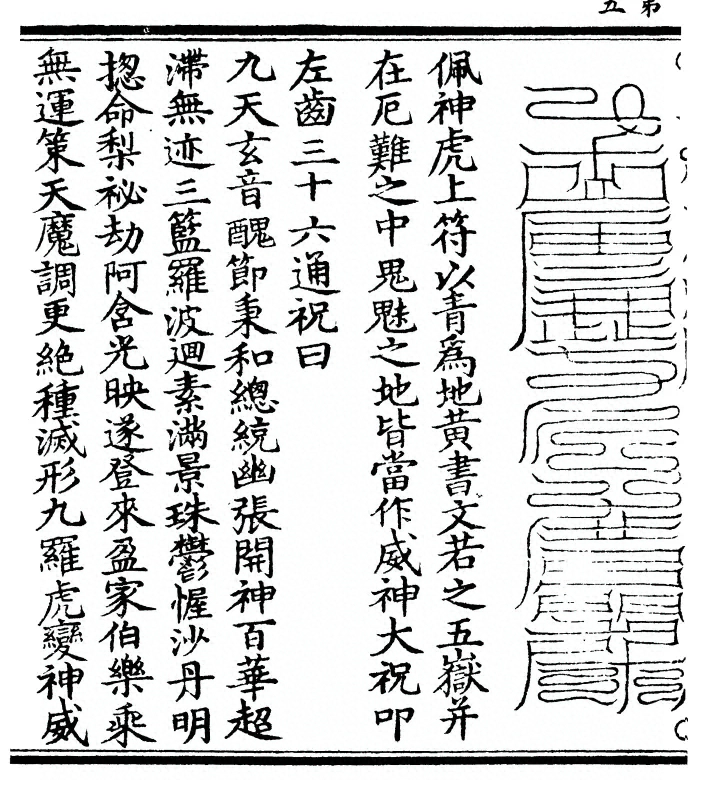 第五
佩神虎上符以青為地黃書文若之五嶽并
在厄難之中鬼魅之地皆當作威神大祝叩
左齒三十六通祝曰
九天玄音醜節秉和總統幽張開神百華超
滯無迹三籃羅波迴素滿景珠鬱幄沙丹明
揔命梨祕劫阿含光映遂登來盈家伯樂乘
無運策天魔調更絕種滅形九羅虎變神威